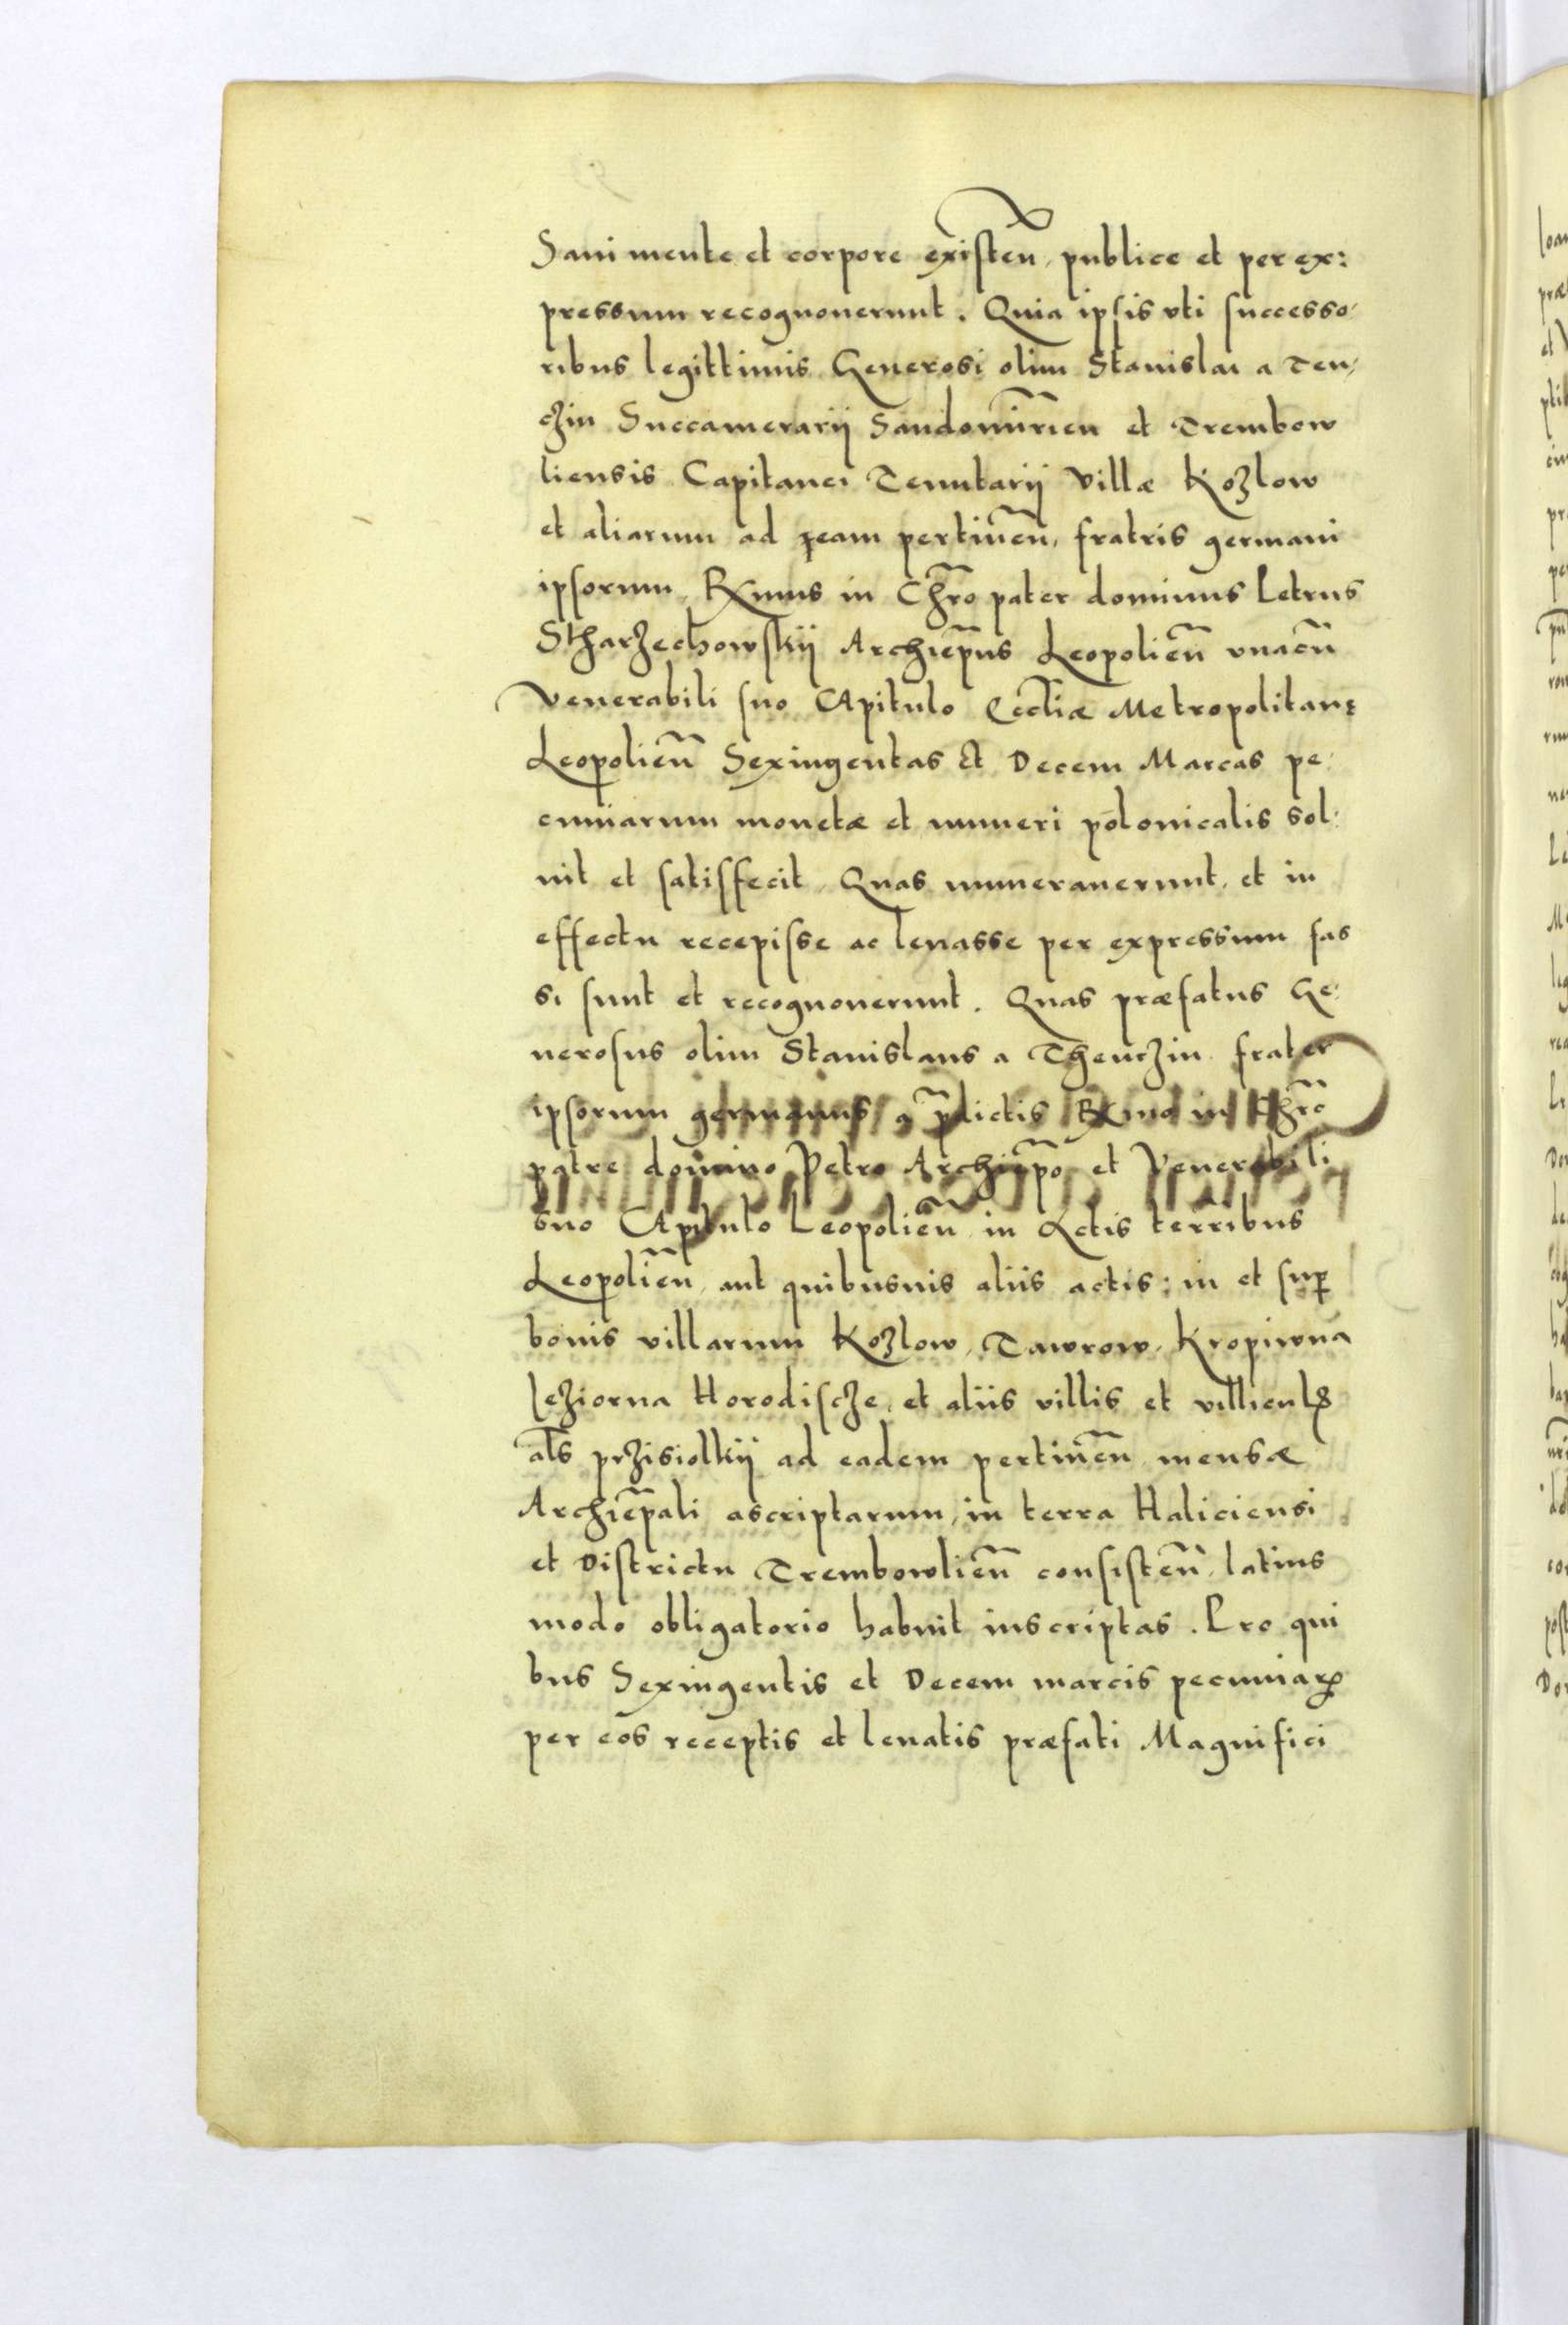 Sani mente et corpore existen̄, publice et per ex:
pressum recognouerunt. Quia ipsis vti successo-
ribus legittimis Generosi olim Stanislai a Ten-
czin Succamerarij Sandomīrien et Trembow
liensis Capitanei Tenutarij Villæ Kozlow
et aliarum ad eam pertinen̄, fratris germani
ipsorum, Rxmus in Chr̄o pater dominus Petrus
Stharzechowskij Archiep̄us Leopolien̄ vnacū
Venerabili suo Capitulo Eccl̄iæ Metropolitanę
Leopolien̄ Sexingentas et Decem Marcas pe-
cuniarum monetæ et numeri polonicalis sol-
uit et satisfecit, Quas numerauerunt, et in
effectu recepisse ac leuasse per expressum fas
si sunt et recognouerunt. Quas præfatus Ge-
nerosus olim Stanislaus a Thenczin frater
ipsorum germanus, p̄dictis Rxmo in Chr̄o
patre domino Petro Archiep̄o et Venerabili
suo Capitulo Leopolien̄ in Actis terr̄ribus
Leopolien̄, aut quibusuis aliis actis: in et sup̄
bonis villarum Kozlow, Tawrow, Kropiwna
Jeziorna Horodiscze, et aliis villis et villiculꝭ
al̄s przisiolkij ad eadem pertinen̄ mensæ
Archiep̄ali ascriptarum, in terra Haliciensi
et Districtu Trembowlien̄ consisten̄, latius
modo obligatorio habuit inscriptas. Pro qui
bus Sexingentis et Decem marcis pecuniaꝝ
per eos receptis et leuatis præfati Magnifici